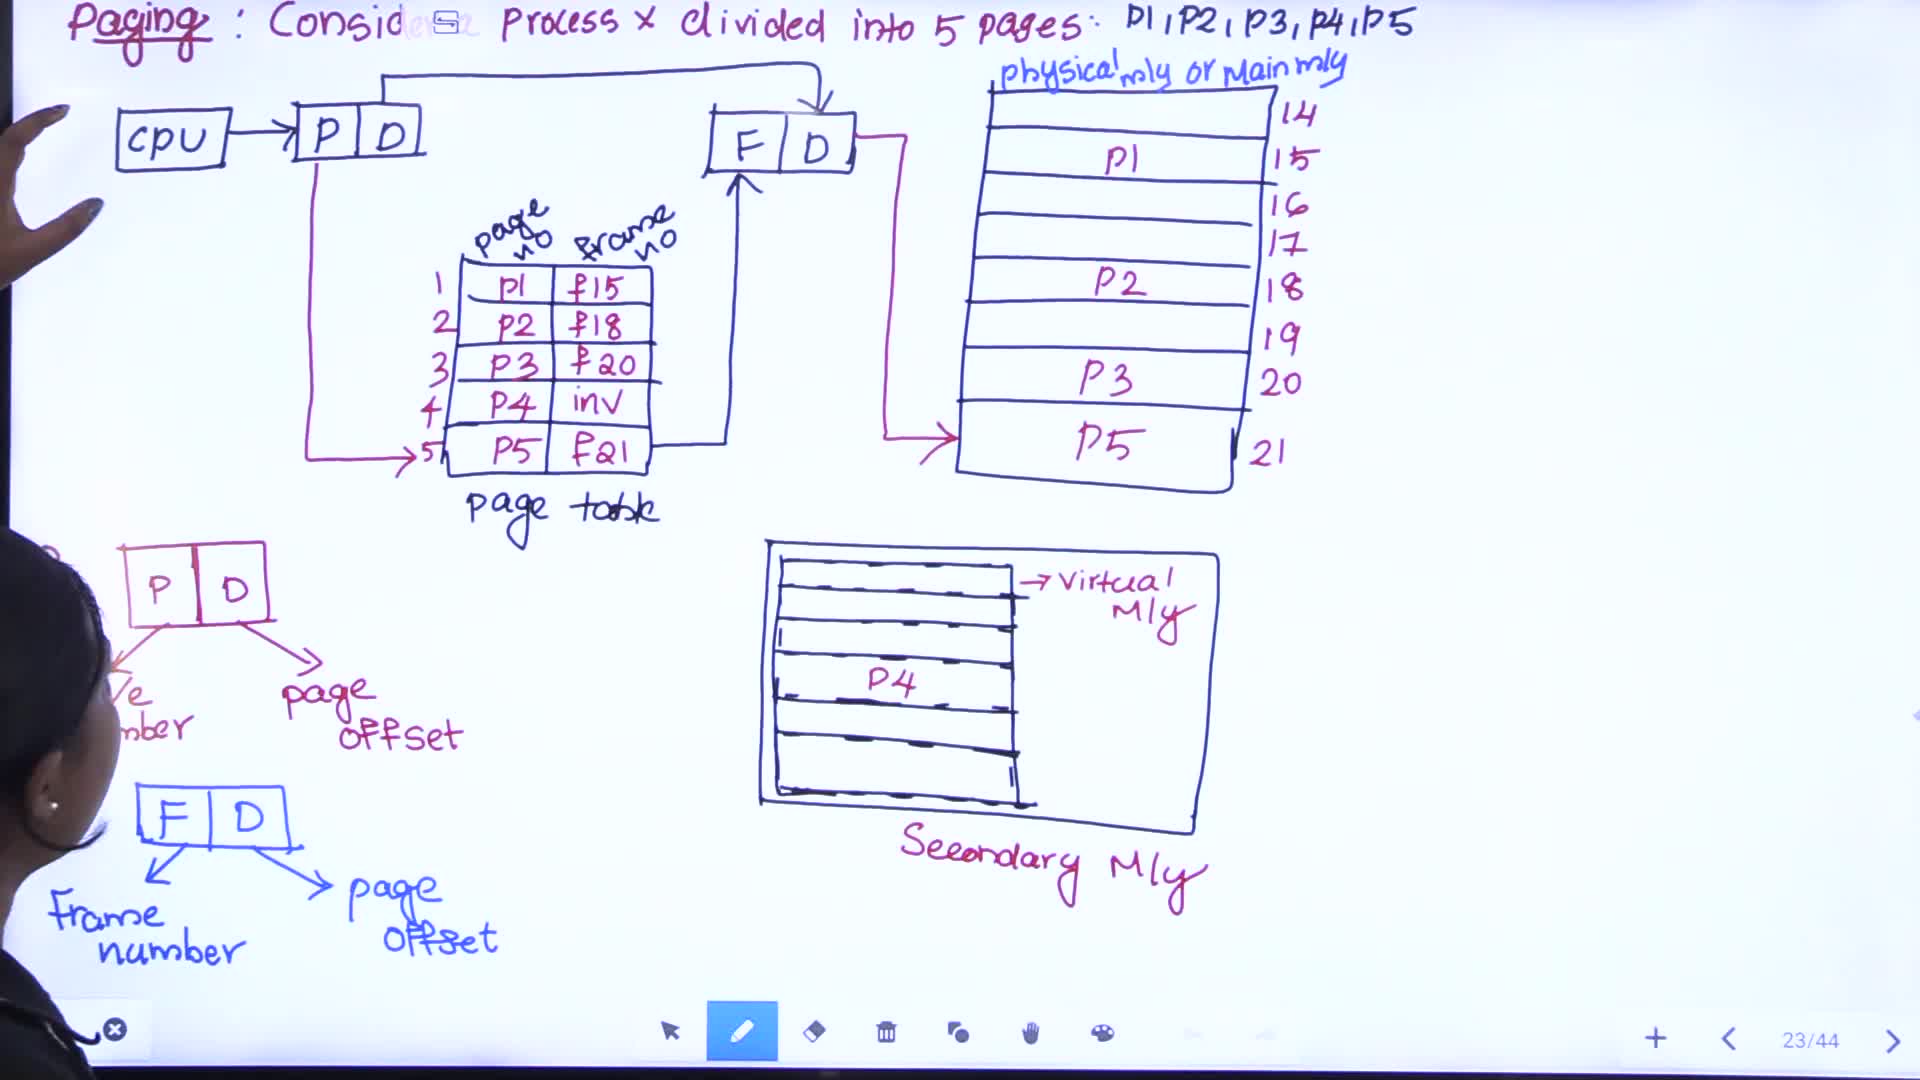 Paging : Consid process x divided into 5 pages: P1, P2, P3, P4, P5
physical mly or Main mly
CPU
P D
F D
page no
frame no
1 P1 f15
2 P2 f18
3 P3 f20
4 P4 inv
5 P5 f21
page table
14
P1 15
16
17
P2 18
19
P3 20
P5 21
P D
page offset
mber
F D
Frame number
page offset
→ Virtual Mly
P4
Secondary Mly
23/44